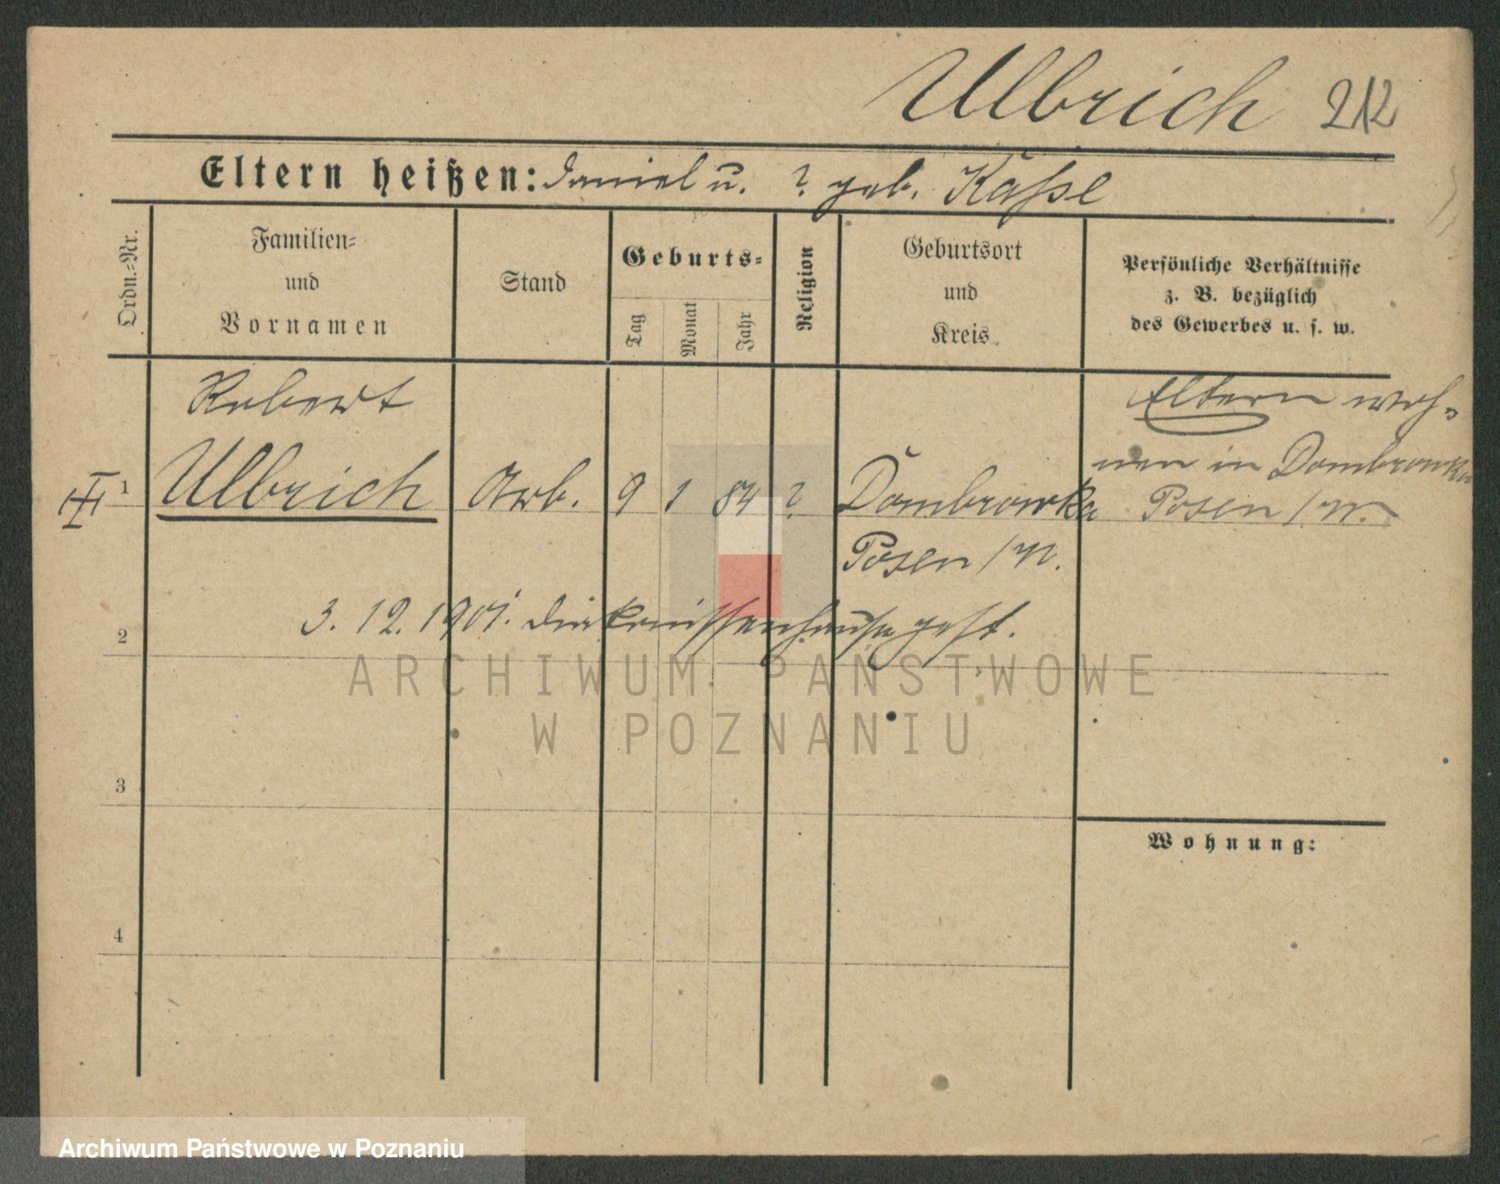 Ulbrich 212
Eltern heißen: Daniel u. ? geb. Kaßse
Ordn.=Nr.
Familien=
und
Vornamen
Stand
Geburts=
Tag
Monat
Jahr
Religion
Geburtsort
und
Kreis.
Persönliche Verhältnisse
z. B. bezüglich
des Gewerbes u. s. w.
Robert
1 Ulbrich Arb. 9 1 84 ? Dombrowka
Posen /W.
Eltern woh=
nen in Dombrowka
Posen /W.
2 3. 12. 1901. Diakonissenhause gest.
3
4
Wohnung:
ARCHIWUM PAŃSTWOWE
W POZNANIU
Archiwum Państwowe w Poznaniu